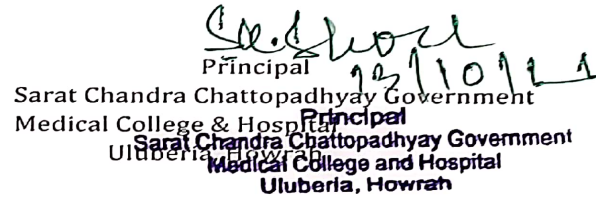 Principal
Sarat Chandra Chattopadhyay Government
Medical College & Hospital
Uluberia, Howrah
Principal
Sarat Chandra Chattopadhyay Government
Medical College and Hospital
Uluberia, Howrah